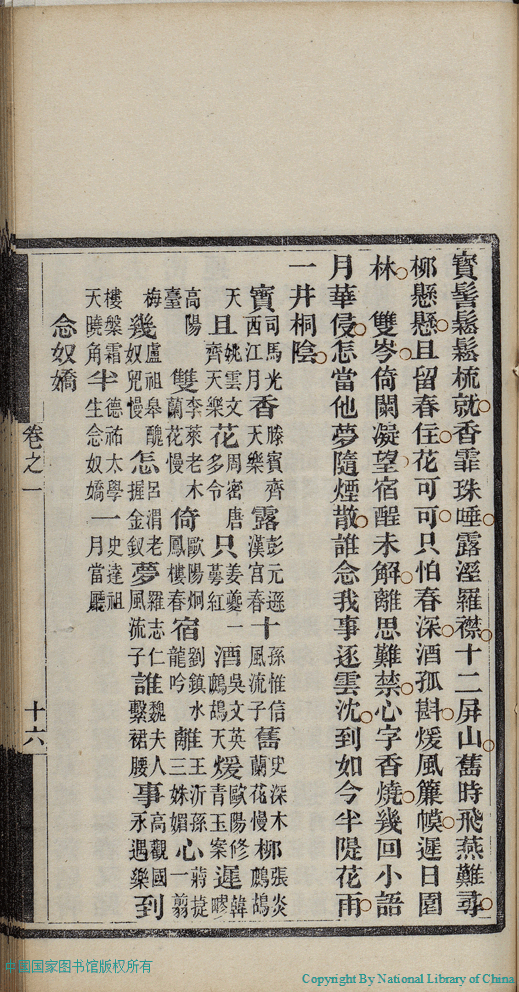 寳髻鬆鬆梳就香霏珠唾露溼羅襟十二屏山舊時飛燕難尋
柳懸懸且留春住花可可只怕春深酒孤斟煖風簾幙遲日園
林　雙岑倚闌凝望宿酲未解離思難禁心字香燒幾回小語
月華侵怎當他夢隨煙散誰念我事逐雲沈到如今半隄花雨
一井桐陰
寳司馬光西江月香滕賓齊天樂露彭元遜漢宮春十孫惟信風流子舊史深木蘭花慢柳張炎鷓鴣
天且姚雲文齊天樂花周密唐多令只姜夔一萼紅酒吳文英鷓鴣天煖歐陽修青玉案遲韓疁
高陽臺雙李萊老木蘭花慢倚歐陽炯鳳樓春宿劉鎮水龍吟離王沂孫三姝媚心蔣捷一翦
梅幾盧祖皋醜奴兒慢怎呂渭老握金釵夢羅志仁風流子誰魏夫人繫裙腰事高觀國永遇樂到
樓槃霜天曉角半德祐太學生念奴嬌一史達祖月當廳
念奴嬌
卷之一
十六
中国国家图书馆版权所有
Copyright By National Library of China